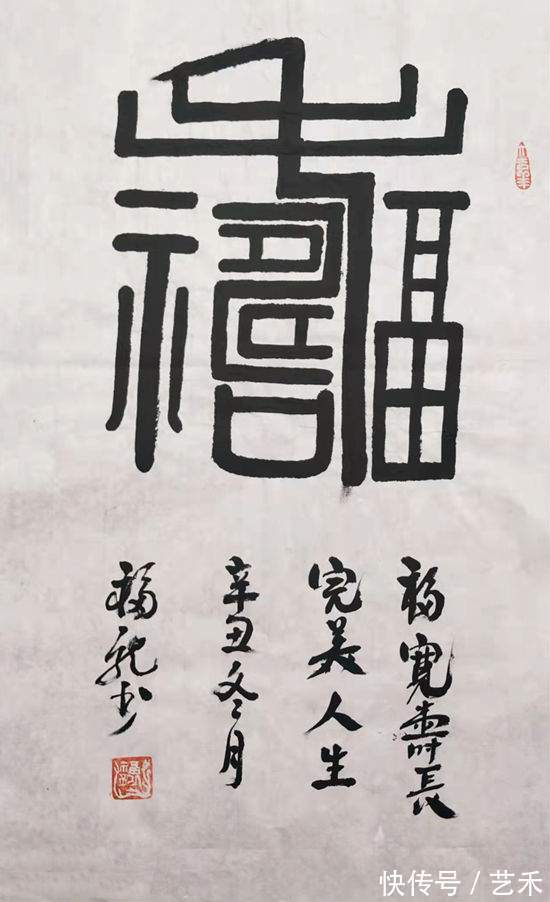 福壽
福寬壽長
完美人生
辛丑冬月
福龙书
快传号 / 艺禾